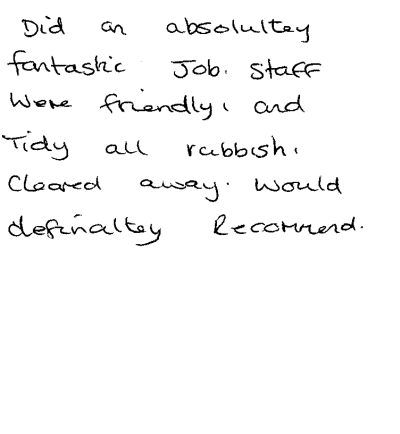 Did an absolultey
fantastic Job. Staff
Were friendly, and
Tidy all rubbish,
Cleared away. Would
definaltey Recommend.